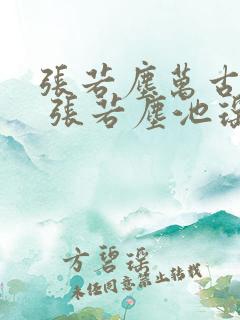 張若塵萬古
張若塵池瑤
方碧瑤
未經同意禁止轉載